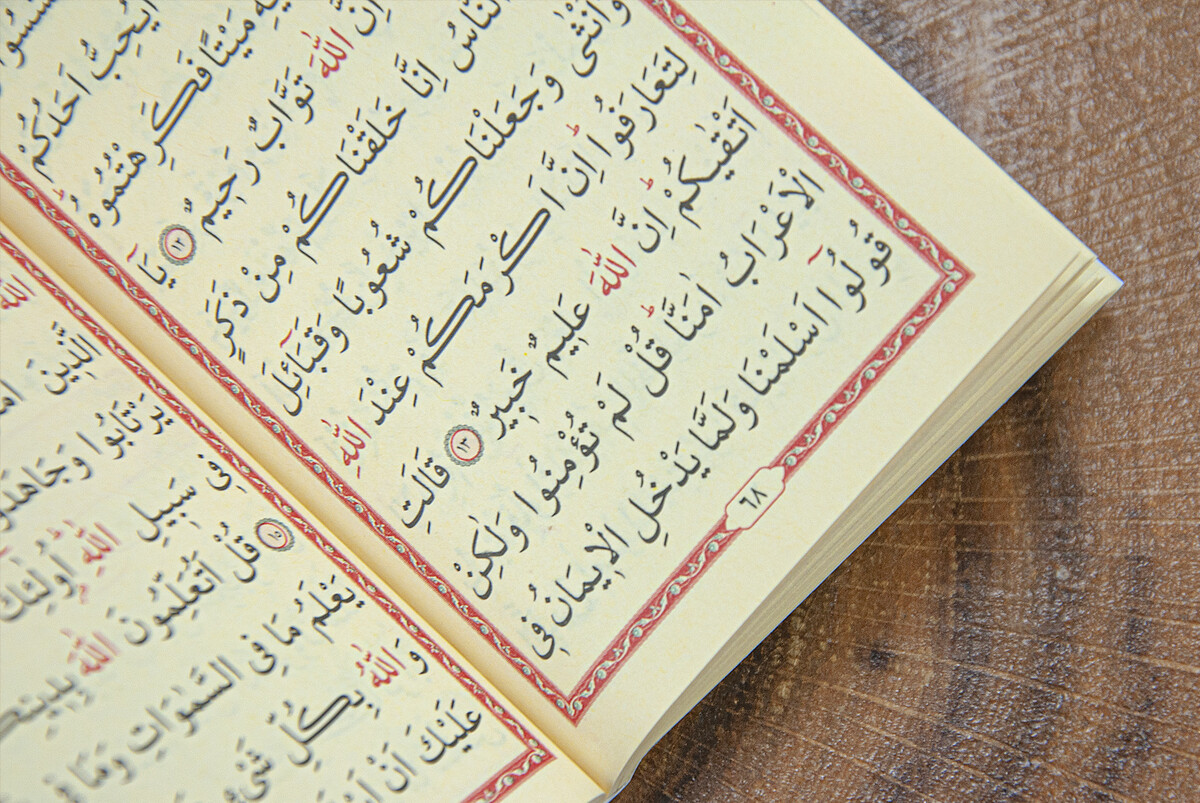 اَيُحِبُّ اَحَدُكُمْ
مَيْتًا فَكَرِهْتُمُوهُ
اِنَّ اللّٰهَ تَوَّابٌ رَحِيمٌ ﴿١٢﴾ يَٓا
النَّاسُ اِنَّا خَلَقْنَاكُمْ مِنْ ذَكَرٍ
وَاُنْثٰى وَجَعَلْنَاكُمْ شُعُوبًا وَقَبَٓائِلَ
لِتَعَارَفُواۜ اِنَّ اَكْرَمَكُمْ عِنْدَ اللّٰهِ
اَتْقٰيكُمْۜ اِنَّ اللّٰهَ عَلِيمٌ خَبِيرٌ ﴿١٣﴾ قَالَتِ
الْاَعْرَابُ اٰمَنَّاۜ قُلْ لَمْ تُؤْمِنُوا وَلٰكِنْ
قُولُٓوا اَسْلَمْنَا وَلَمَّا يَدْخُلِ الْاِيمَانُ فِي
٦٨
اللّٰه
الَّذِينَ
يَرْتَابُوا وَجَاهَدُ
فِي سَبِيلِ اللّٰهِۜ اُولٰٓئِكَ
﴿١٥﴾ قُلْ اَتُعَلِّمُونَ اللّٰهَ
يَعْلَمُ مَا فِي السَّمٰوَاتِ وَمَا فِي
وَاللّٰهُ بِكُلِّ شَيْءٍ
عَلَيْكَ اَنْ